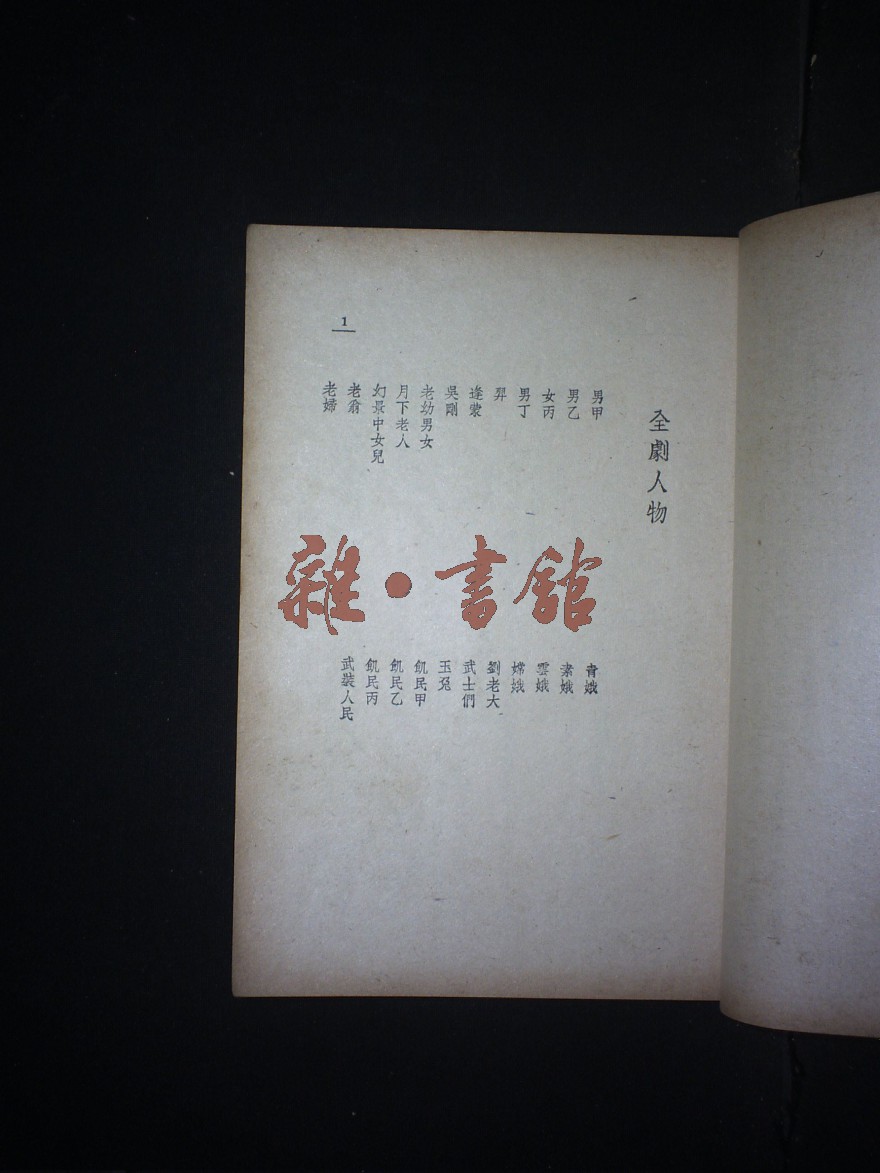 全劇人物
男甲
男乙
女丙
男丁
羿
逢蒙
吳剛
老幼男女
月下老人
幻景中女兒
老翁
老婦
青娥
素娥
雲娥
嫦娥
劉老大
武士們
玉兔
飢民甲
飢民乙
飢民丙
武裝人民
1
雜·書館